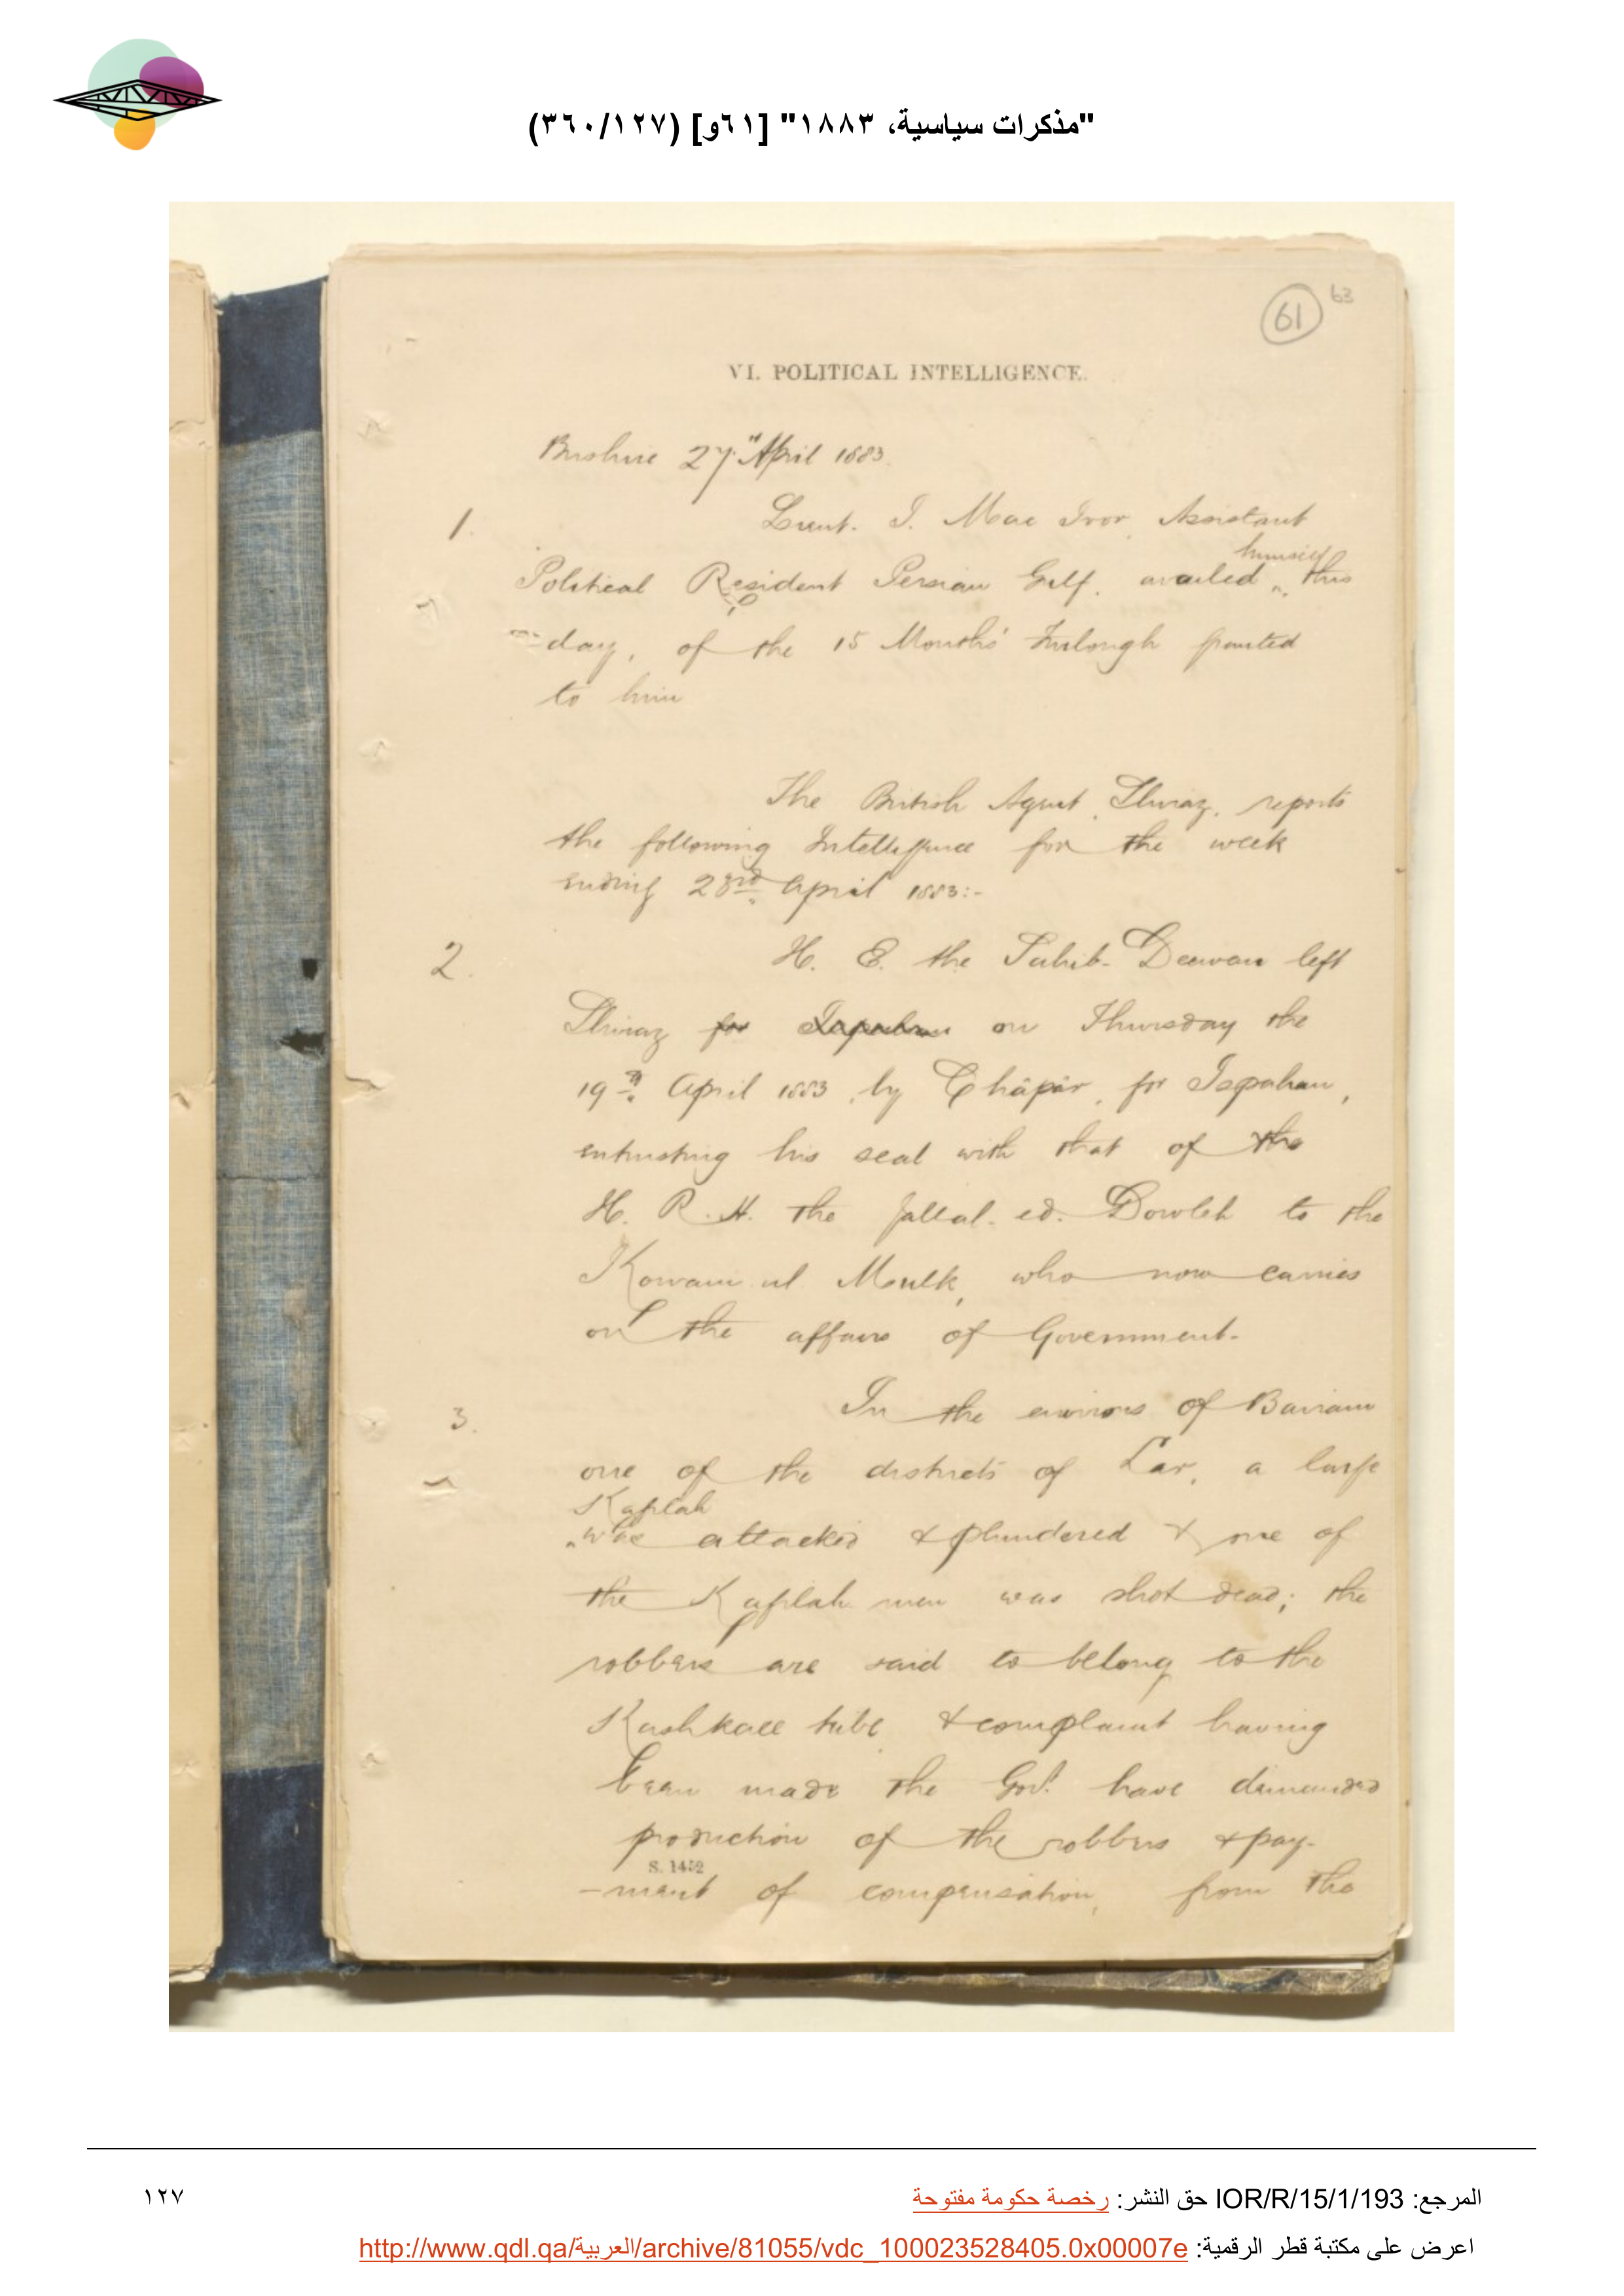 "مذكرات سياسية، ١٨٨٣" [٦١و] (٣٦٠/١٢٧)
61 63
VI. POLITICAL INTELLIGENCE.
Bushire 27th April 1883.
1. Lieut. I. Mac Ivor, Assistant
himself
Political Resident Persian Gulf, availed this
day, of the 15 Months' Furlough granted
to him
The British Agent, Shiraz, reports
the following Intelligence for the week
ending 23rd April 1883:-
2. H. E. the Sahib-Deewan left
Shiraz for Ispahan on Thursday the
19th April 1883, by Châpâr, for Ispahan,
entrusting his seal with that of the
H. R. H. the Jallal-ed-Dowleh to the
Kowam ul Moulk, who now carries
on the affairs of Government.
3. In the environs of Bairam
one of the districts of Lar, a large
Kaflah
was attacked & plundered & one of
the Kaflah men was shot dead; the
robbers are said to belong to the
Kashkaee tribe & complaint having
been made the Govt. have demanded
production of the robbers & pay-
S. 1452
-ment of compensation, from the
المرجع: IOR/R/15/1/193 حق النشر: رخصة حكومة مفتوحة
١٢٧
اعرض على مكتبة قطر الرقمية: http://www.qdl.qa/العربية/archive/81055/vdc_100023528405.0x00007e